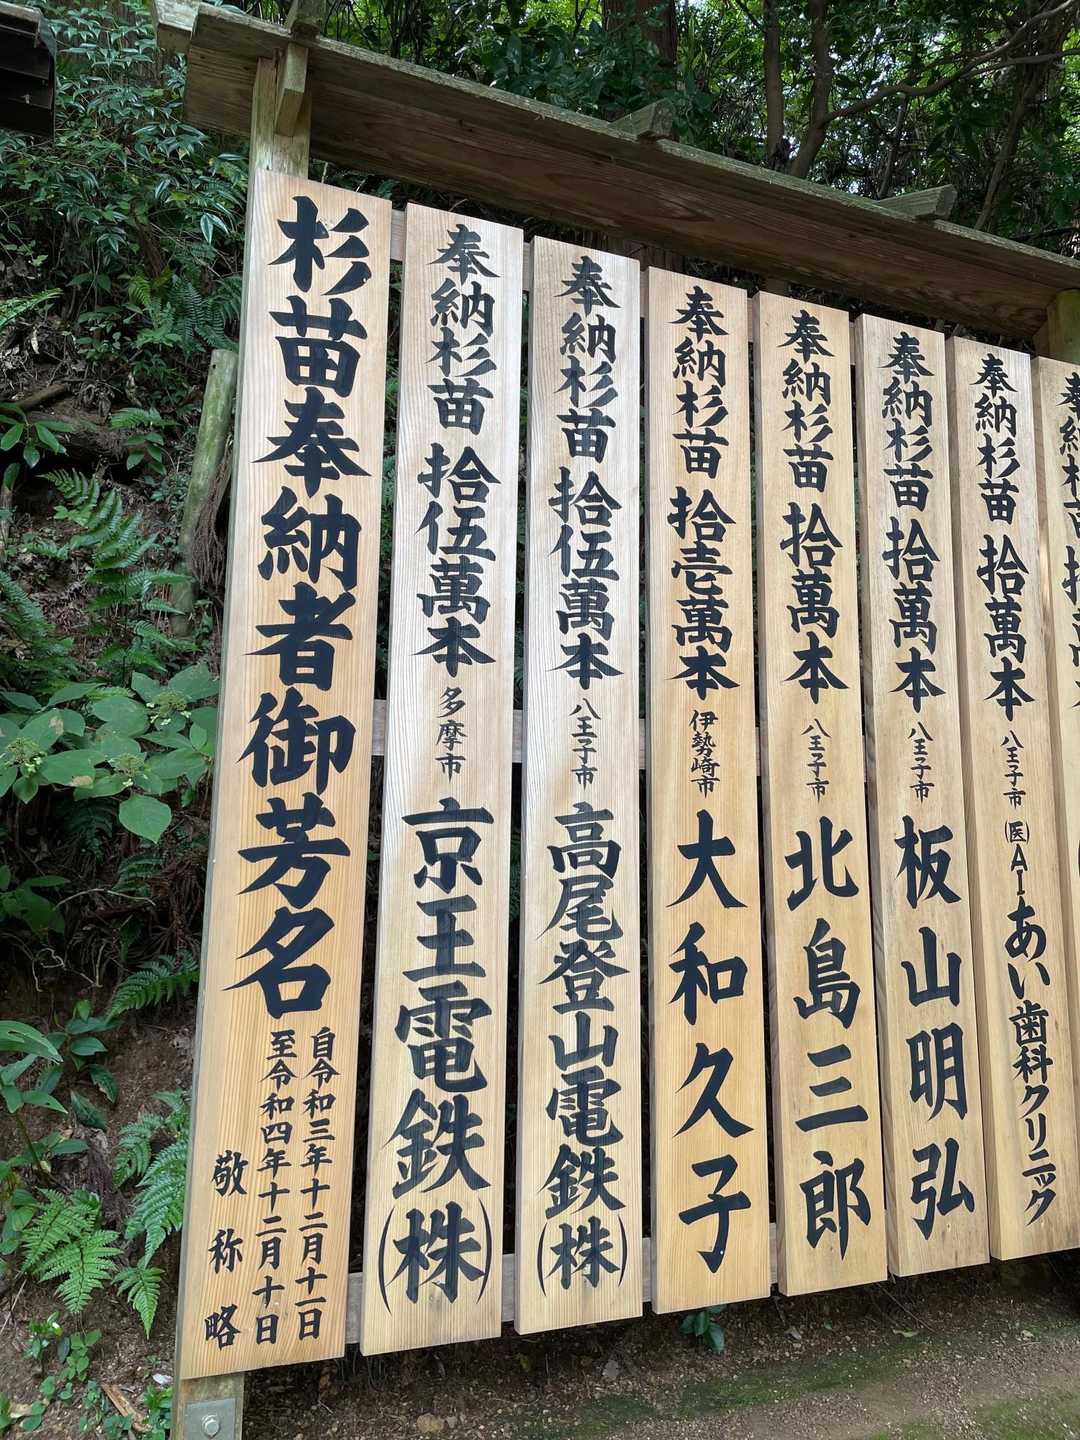 杉苗奉納者御芳名
自令和三年十二月十一日
至令和四年十二月十日
敬称略
奉納杉苗 拾伍萬本 多摩市 京王電鉄(株)
奉納杉苗 拾伍萬本 八王子市 高尾登山電鉄(株)
奉納杉苗 拾壱萬本 伊勢崎市 大和久子
奉納杉苗 拾萬本 八王子市 北島三郎
奉納杉苗 拾萬本 八王子市 板山明弘
奉納杉苗 拾萬本 八王子市 ㈩AIあい歯科クリニック
奉納杉苗